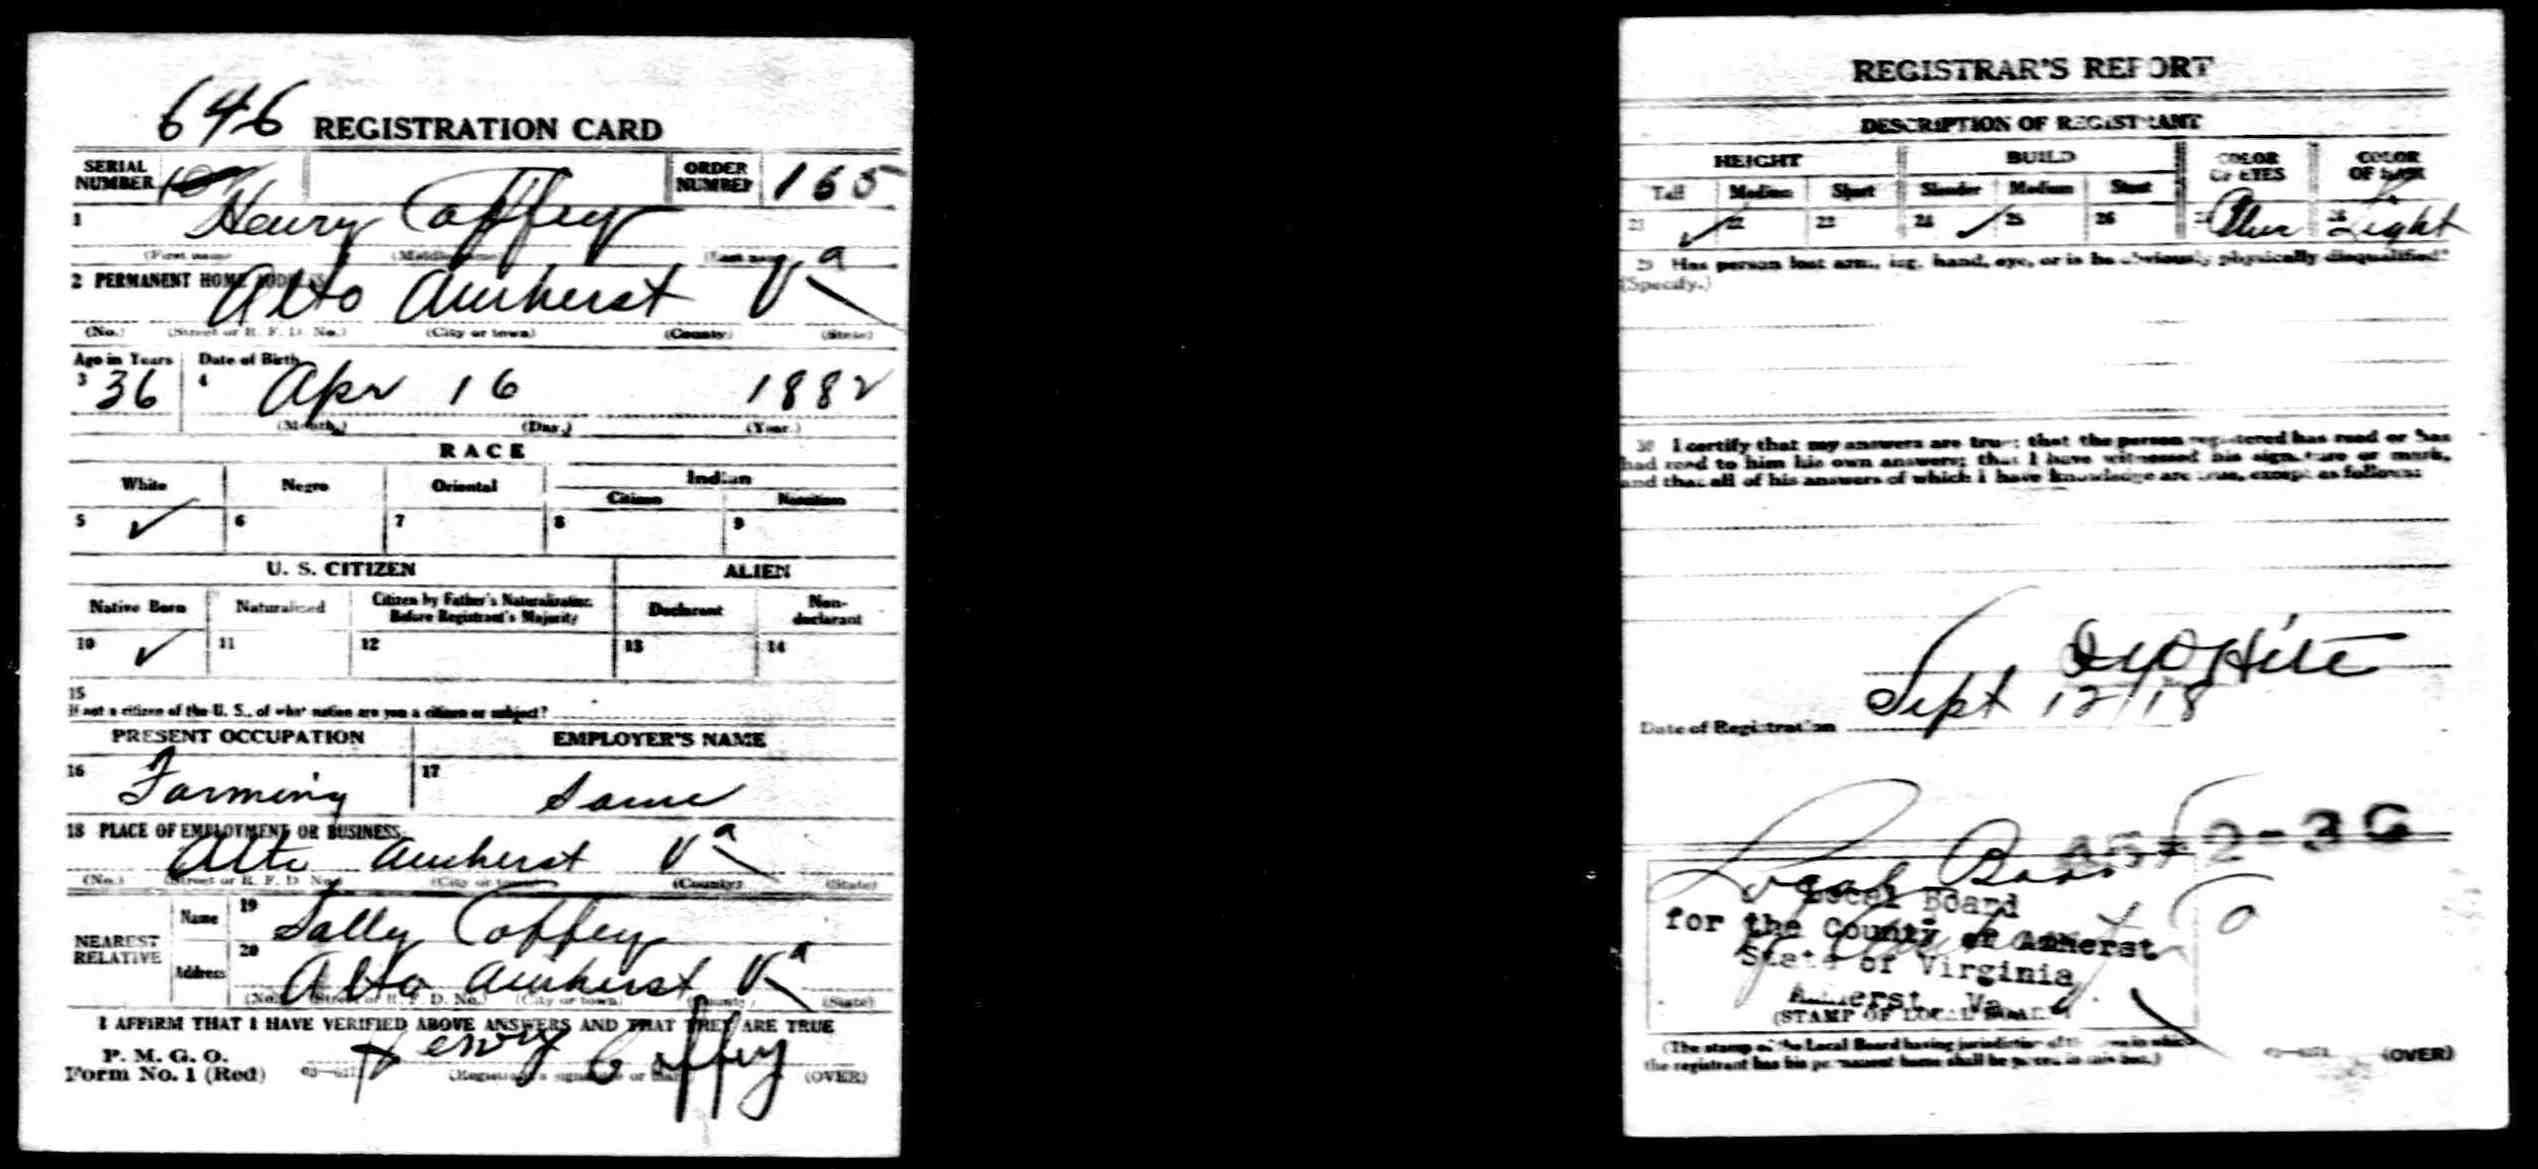 646 REGISTRATION CARD
SERIAL NUMBER ORDER NUMBER 165
1 Henry Coffey
(First name) (Middle name) (Last name)
2 PERMANENT HOME ADDRESS
Alto Amherst Va
(No.) (Street or R. F. D. No.) (City or town) (County) (State)
Age in Years Date of Birth
3 36 4 Apr 16 1882
(Month.) (Day.) (Year.)
RACE
White Negro Oriental Indian
Citizen Noncitizen
5 ✓ 6 7 8 9
U. S. CITIZEN ALIEN
Native Born Naturalized Citizen by Father's Naturalization Before Registrant's Majority Declarant Non-declarant
10 ✓ 11 12 13 14
15
If not a citizen of the U. S., of what nation are you a citizen or subject?
PRESENT OCCUPATION EMPLOYER'S NAME
16 Farming 17 Same
18 PLACE OF EMPLOYMENT OR BUSINESS
Alto Amherst Va
(No.) (Street or R. F. D. No.) (City or town) (County) (State)
NEAREST RELATIVE
Name 19 Sally Coffey
Address 20 Alto Amherst Va
(No.) (Street or R. F. D. No.) (City or town) (County) (State)
I AFFIRM THAT I HAVE VERIFIED ABOVE ANSWERS AND THAT THEY ARE TRUE
P. M. G. O.
Form No. 1 (Red) Henry Coffey
(Registrant's signature or mark) (OVER)
REGISTRAR'S REPORT
DESCRIPTION OF REGISTRANT
HEIGHT BUILD COLOR OF EYES COLOR OF HAIR
Tall Medium Short Slender Medium Stout
21 ✓ 22 23 24 ✓ 25 26 27 Blue 28 Light
29 Has person lost arm, leg, hand, eye, or is he obviously physically disqualified?
(Specify.)
30 I certify that my answers are true; that the person registered has read or has
had read to him his own answers; that I have witnessed his signature or mark,
and that all of his answers of which I have knowledge are true, except as follows:
Hite
Date of Registration Sept 12/18
Local Board
Local Board
for the County of Amherst
State of Virginia
Amherst, Va.
(STAMP OF LOCAL BOARD)
(The stamp of the Local Board having jurisdiction of the area in which
the registrant has his permanent home shall be placed in this box.)
(OVER)